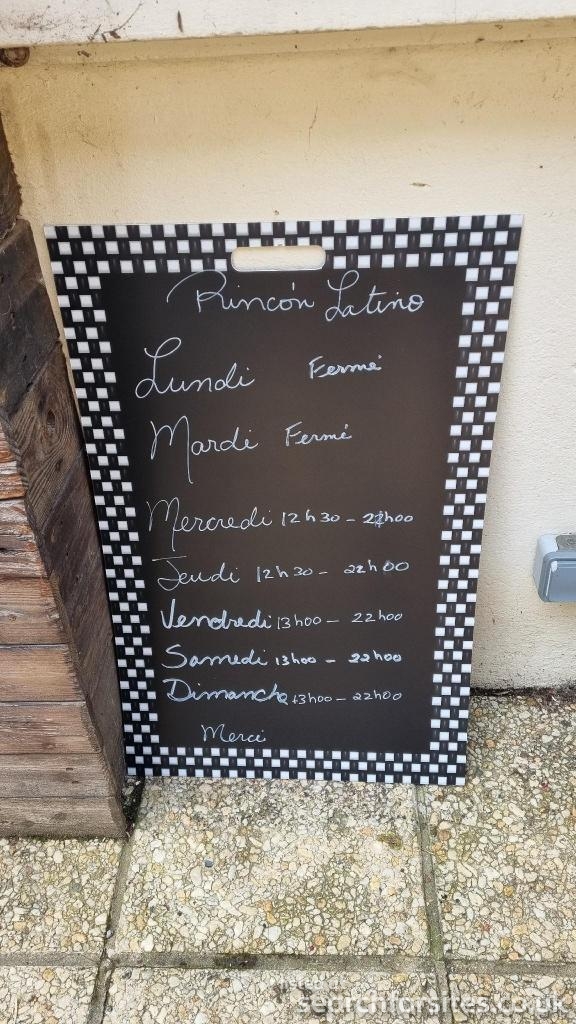 Rincón Latino
Lundi Fermé
Mardi Fermé
Mercredi 12h30 - 22h00
Jeudi 12h30 - 22h00
Vendredi 13h00 - 22h00
Samedi 13h00 - 22h00
Dimanche 13h00 - 22h00
Merci
searchforsites.co.uk